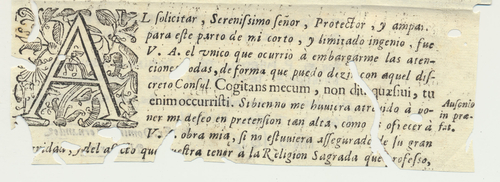 AL solicitar, Serenissimo señor, Protector, y ampar
para este parto de mi corto, y limitado ingenio, fue
V. A. el vnico que ocurriò à embargarme las aten-
ciones todas, de forma que puedo dezir con aquel dis-
creto Consul. Cogitans mecum, non diu quæsiui, tu
enim occurristi. Si bien no me huuiera atreuido à po-
ner mi deseo en pretension tan alta, como es ofrecer à
V. A. obra mia, si no estuuiera assegurado de su gran
ridad, y del afecto que muestra tener à la Religion Sagrada que professo,
Ausonio
in præ-
fat.